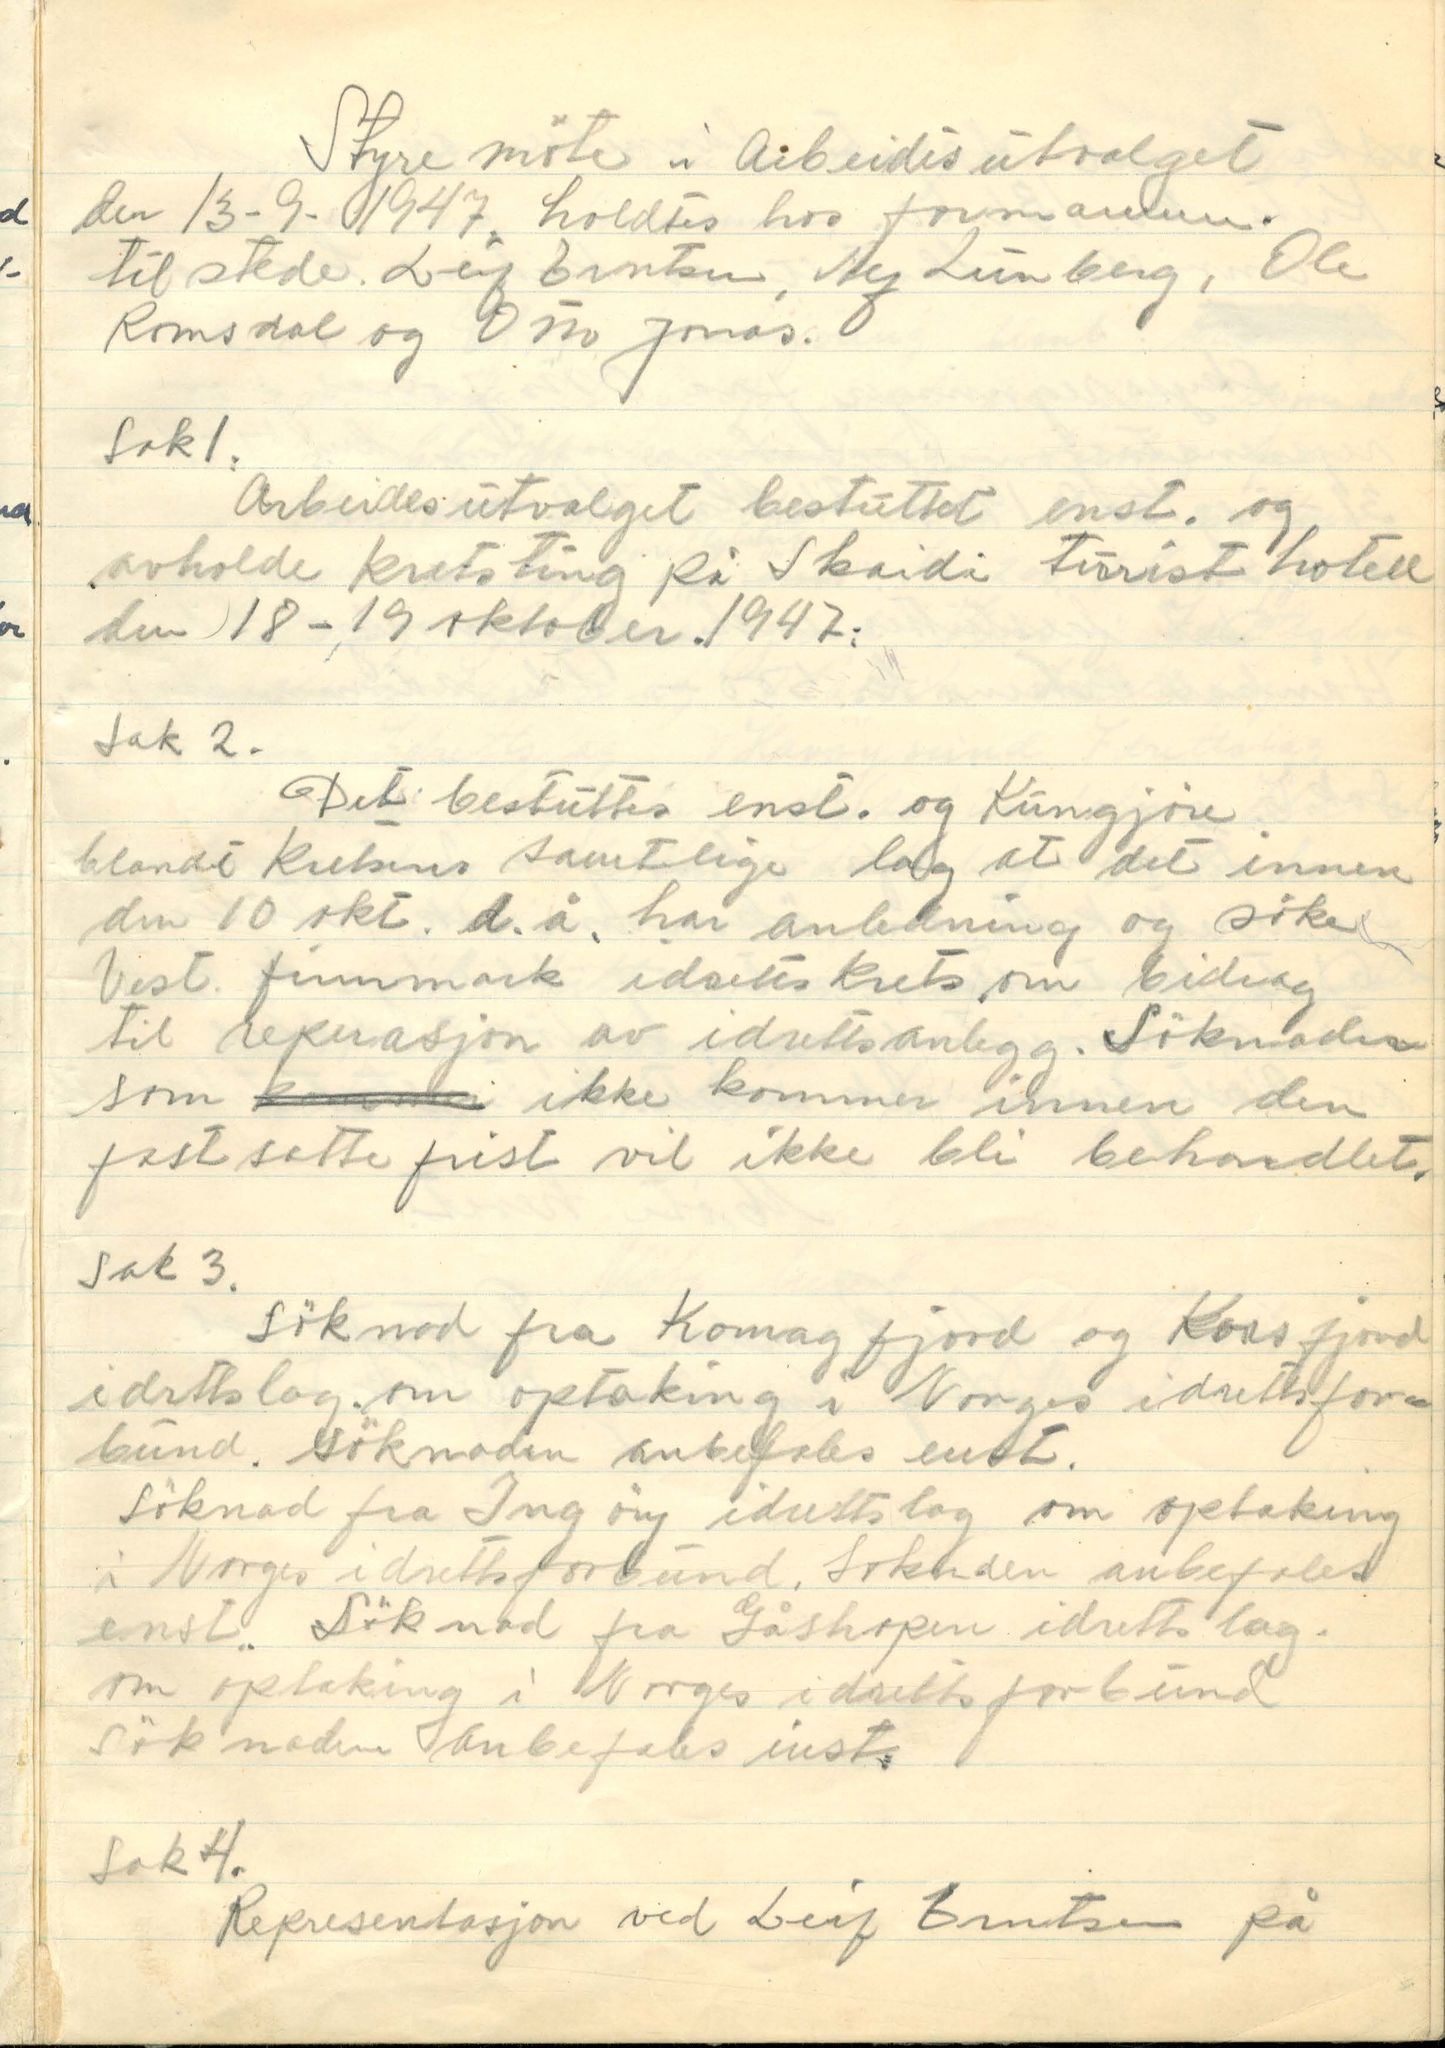 Styre möte i Arbeidesutvalget
den 13-9-1947. holdtes hos formannen.
til stede. Leif Erntsen, Lünberg, Ole
Romsdal og Otto Jonas.
Sak 1.
Arbeidesütvalget bestüttet enst. og
avholde kretsting på Skaidi türist hotell
den 18-19 oktober. 1947.
Sak 2.
Det bestüttes enst. og Küngjöre
blandt kretsens samtlige lag at det innen
den 10 okt. d.å. har anledning og söke
Vest. finnmark idrettskrets om bidrag
til reperasjon av idrettsanlegg. Söknader
som ikke kommer innen den
fastsatte frist vil ikke bli behandlet.
Sak 3.
Söknad fra Komagfjord og Korsfjord
idrettslag. om optaking i Norges idrettsfor-
bünd. Söknaden anbefales enst.
Söknad fra Ingöy idrettslag om optaking
i Norges idrettsforbünd. Söknden anbefales
enst. Söknad fra Gåshopen idrettslag.
om optaking i Norges idrettsforbünd
Söknaden anbefales enst.
Sak 4.
Representasjon ved Leif Erntsen på